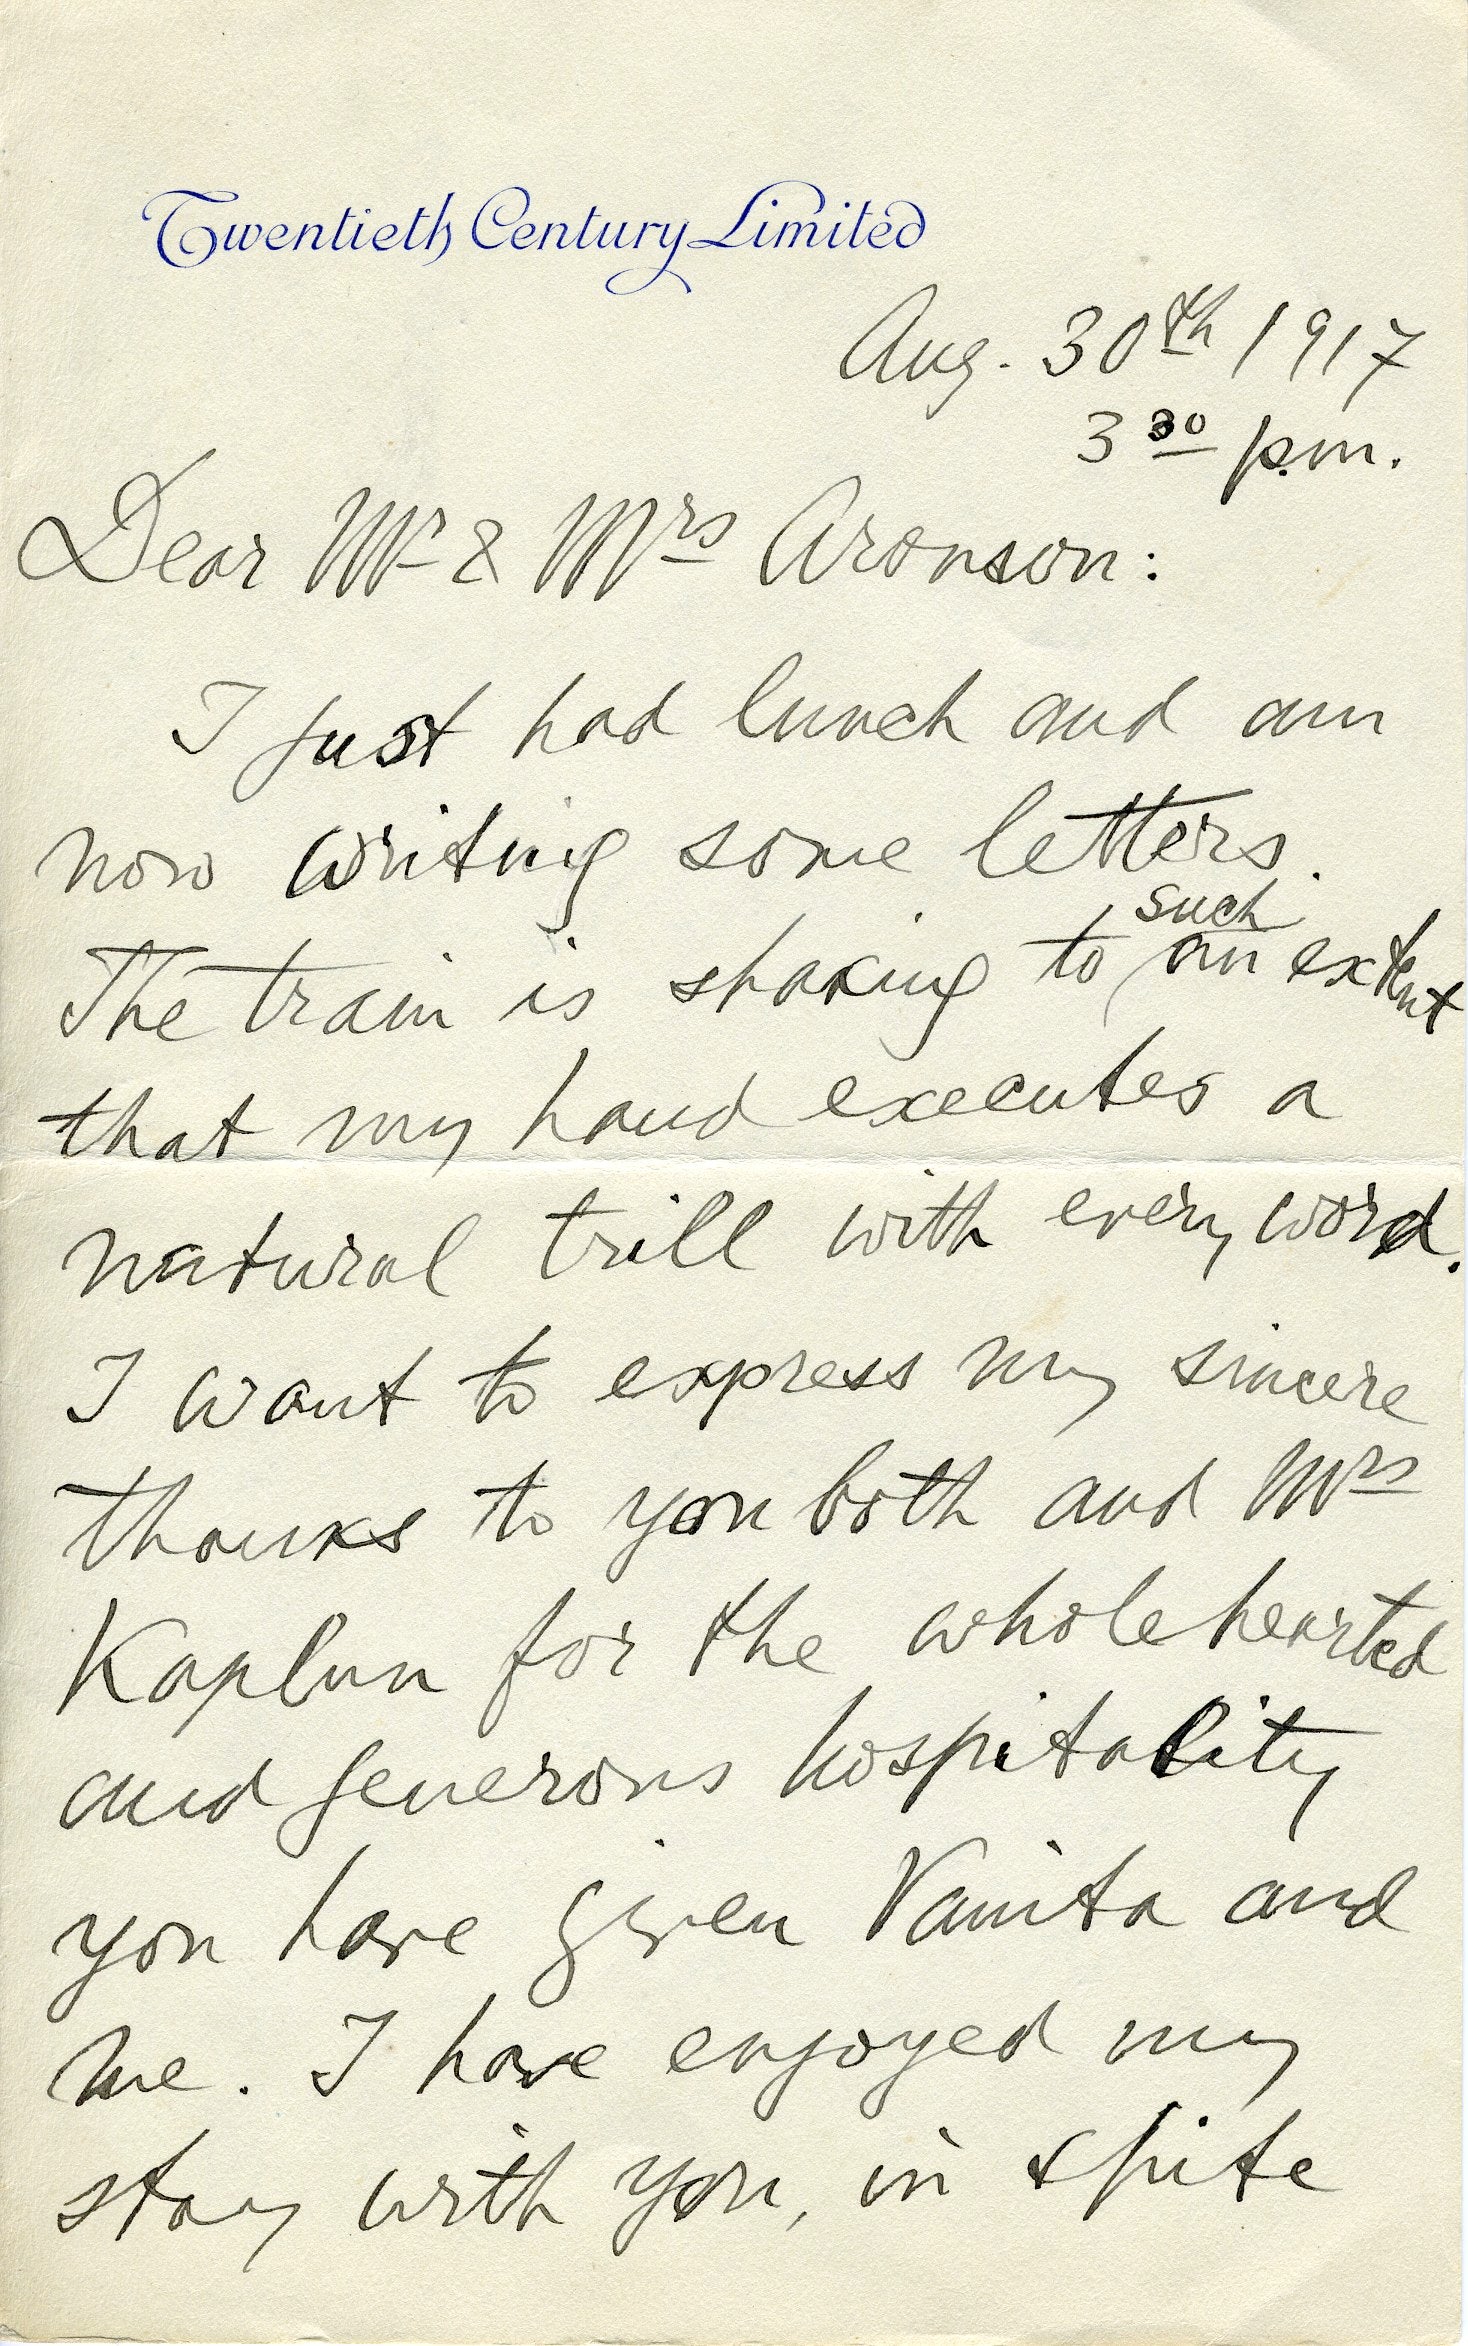 Twentieth Century Limited
Aug. 30th 1917
3 30 p.m.
Dear Mr & Mrs Aronson:
I just had lunch and am
now writing some letters.
such
The train is shaking to an extent
that my hand executes a
natural trill with every word.
I want to express my sincere
thanks to you both and Mrs
Kaplun for the wholehearted
and generous hospitality
you have given Vanita and
me. I have enjoyed my
stay with you, in spite